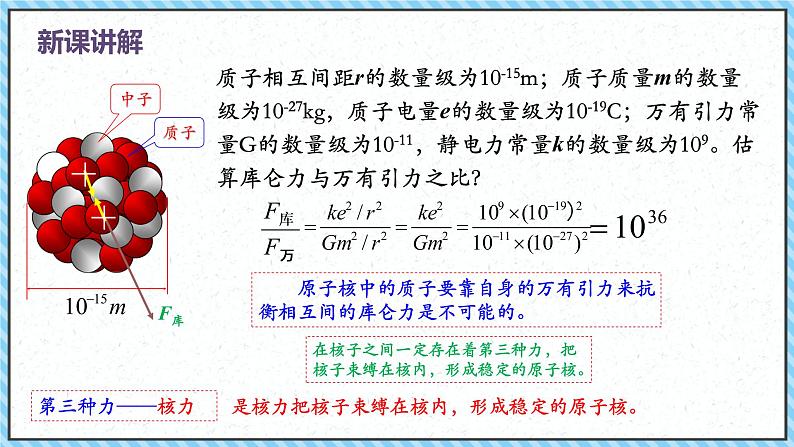 新课讲解
质子相互间距r的数量级为10⁻¹⁵m；质子质量m的数量
级为10⁻²⁷kg，质子电量e的数量级为10⁻¹⁹C；万有引力常
量G的数量级为10⁻¹¹，静电力常量k的数量级为10⁹。估
算库仑力与万有引力之比？
中子
质子
F库/F万 = (ke²/r²)/(Gm²/r²) = ke²/Gm² = (10⁹×(10⁻¹⁹)²)/(10⁻¹¹×(10⁻²⁷)²) = 10³⁶
10⁻¹⁵m
F库
原子核中的质子要靠自身的万有引力来抗
衡相互间的库仑力是不可能的。
在核子之间一定存在着第三种力，把
核子束缚在核内，形成稳定的原子核。
第三种力——核力
是核力把核子束缚在核内，形成稳定的原子核。